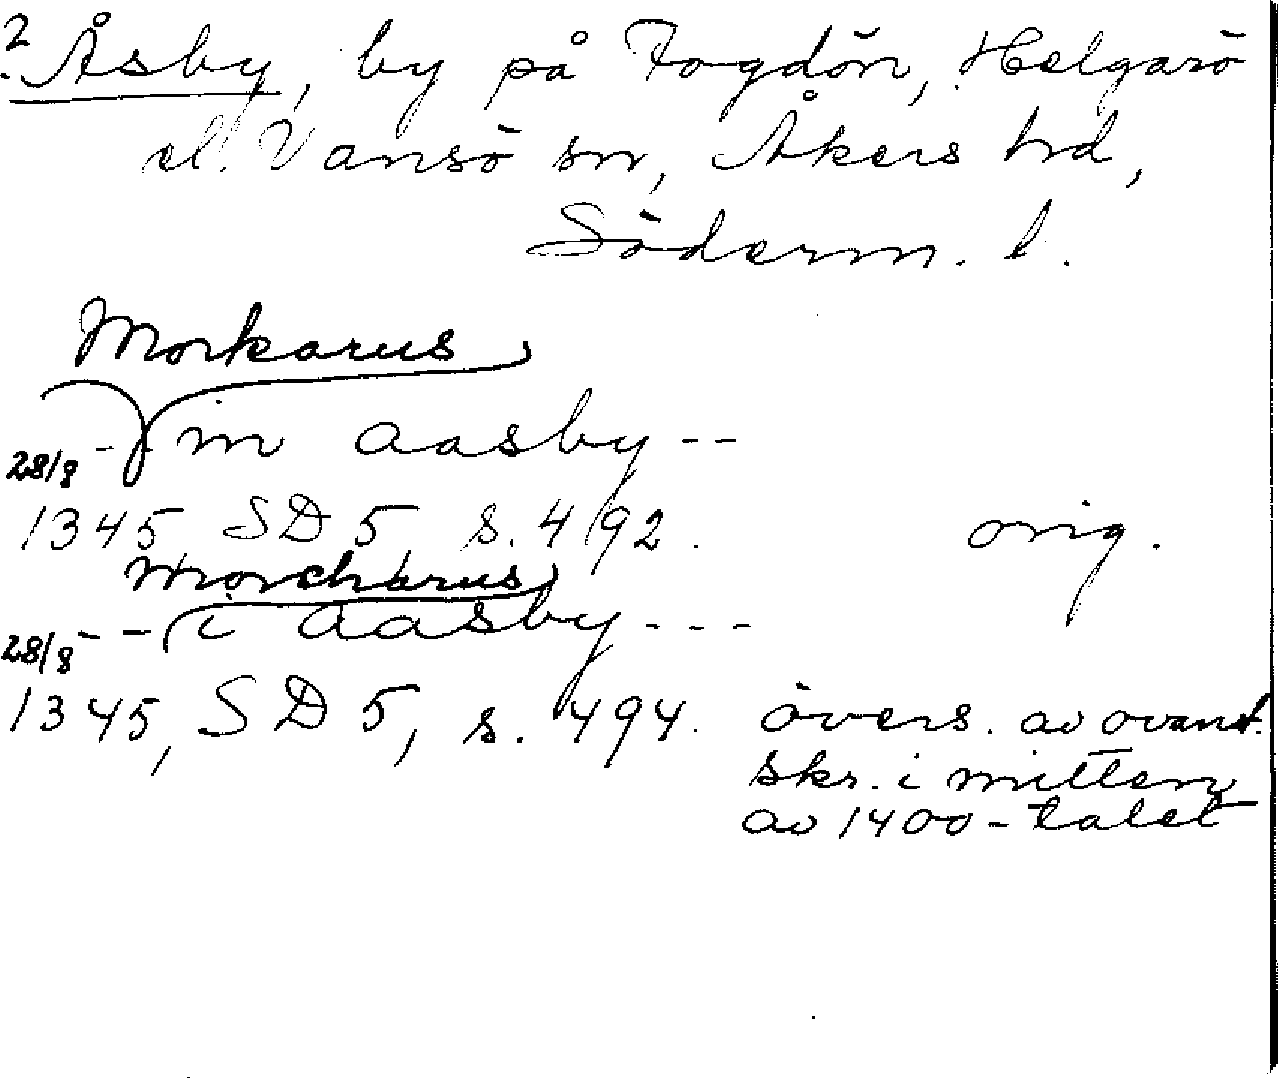 ? Åsby, by på Fogdön, Helgarö
el. Vansö sn, Åkers hd,
Söderm. l.
Morkarus
28/8 - in aasby --
1345 SD 5 s. 492. orig.
Morcharus
28/8 -- i aasby ---
1345, SD 5, s. 494. övers. av ovanst.
skr. i mitten
av 1400-talet